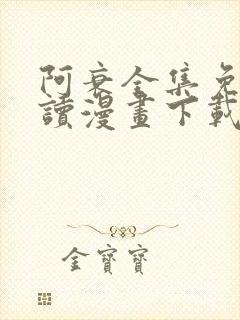 阿衰全集免
讀漫畫下載
金寶寶